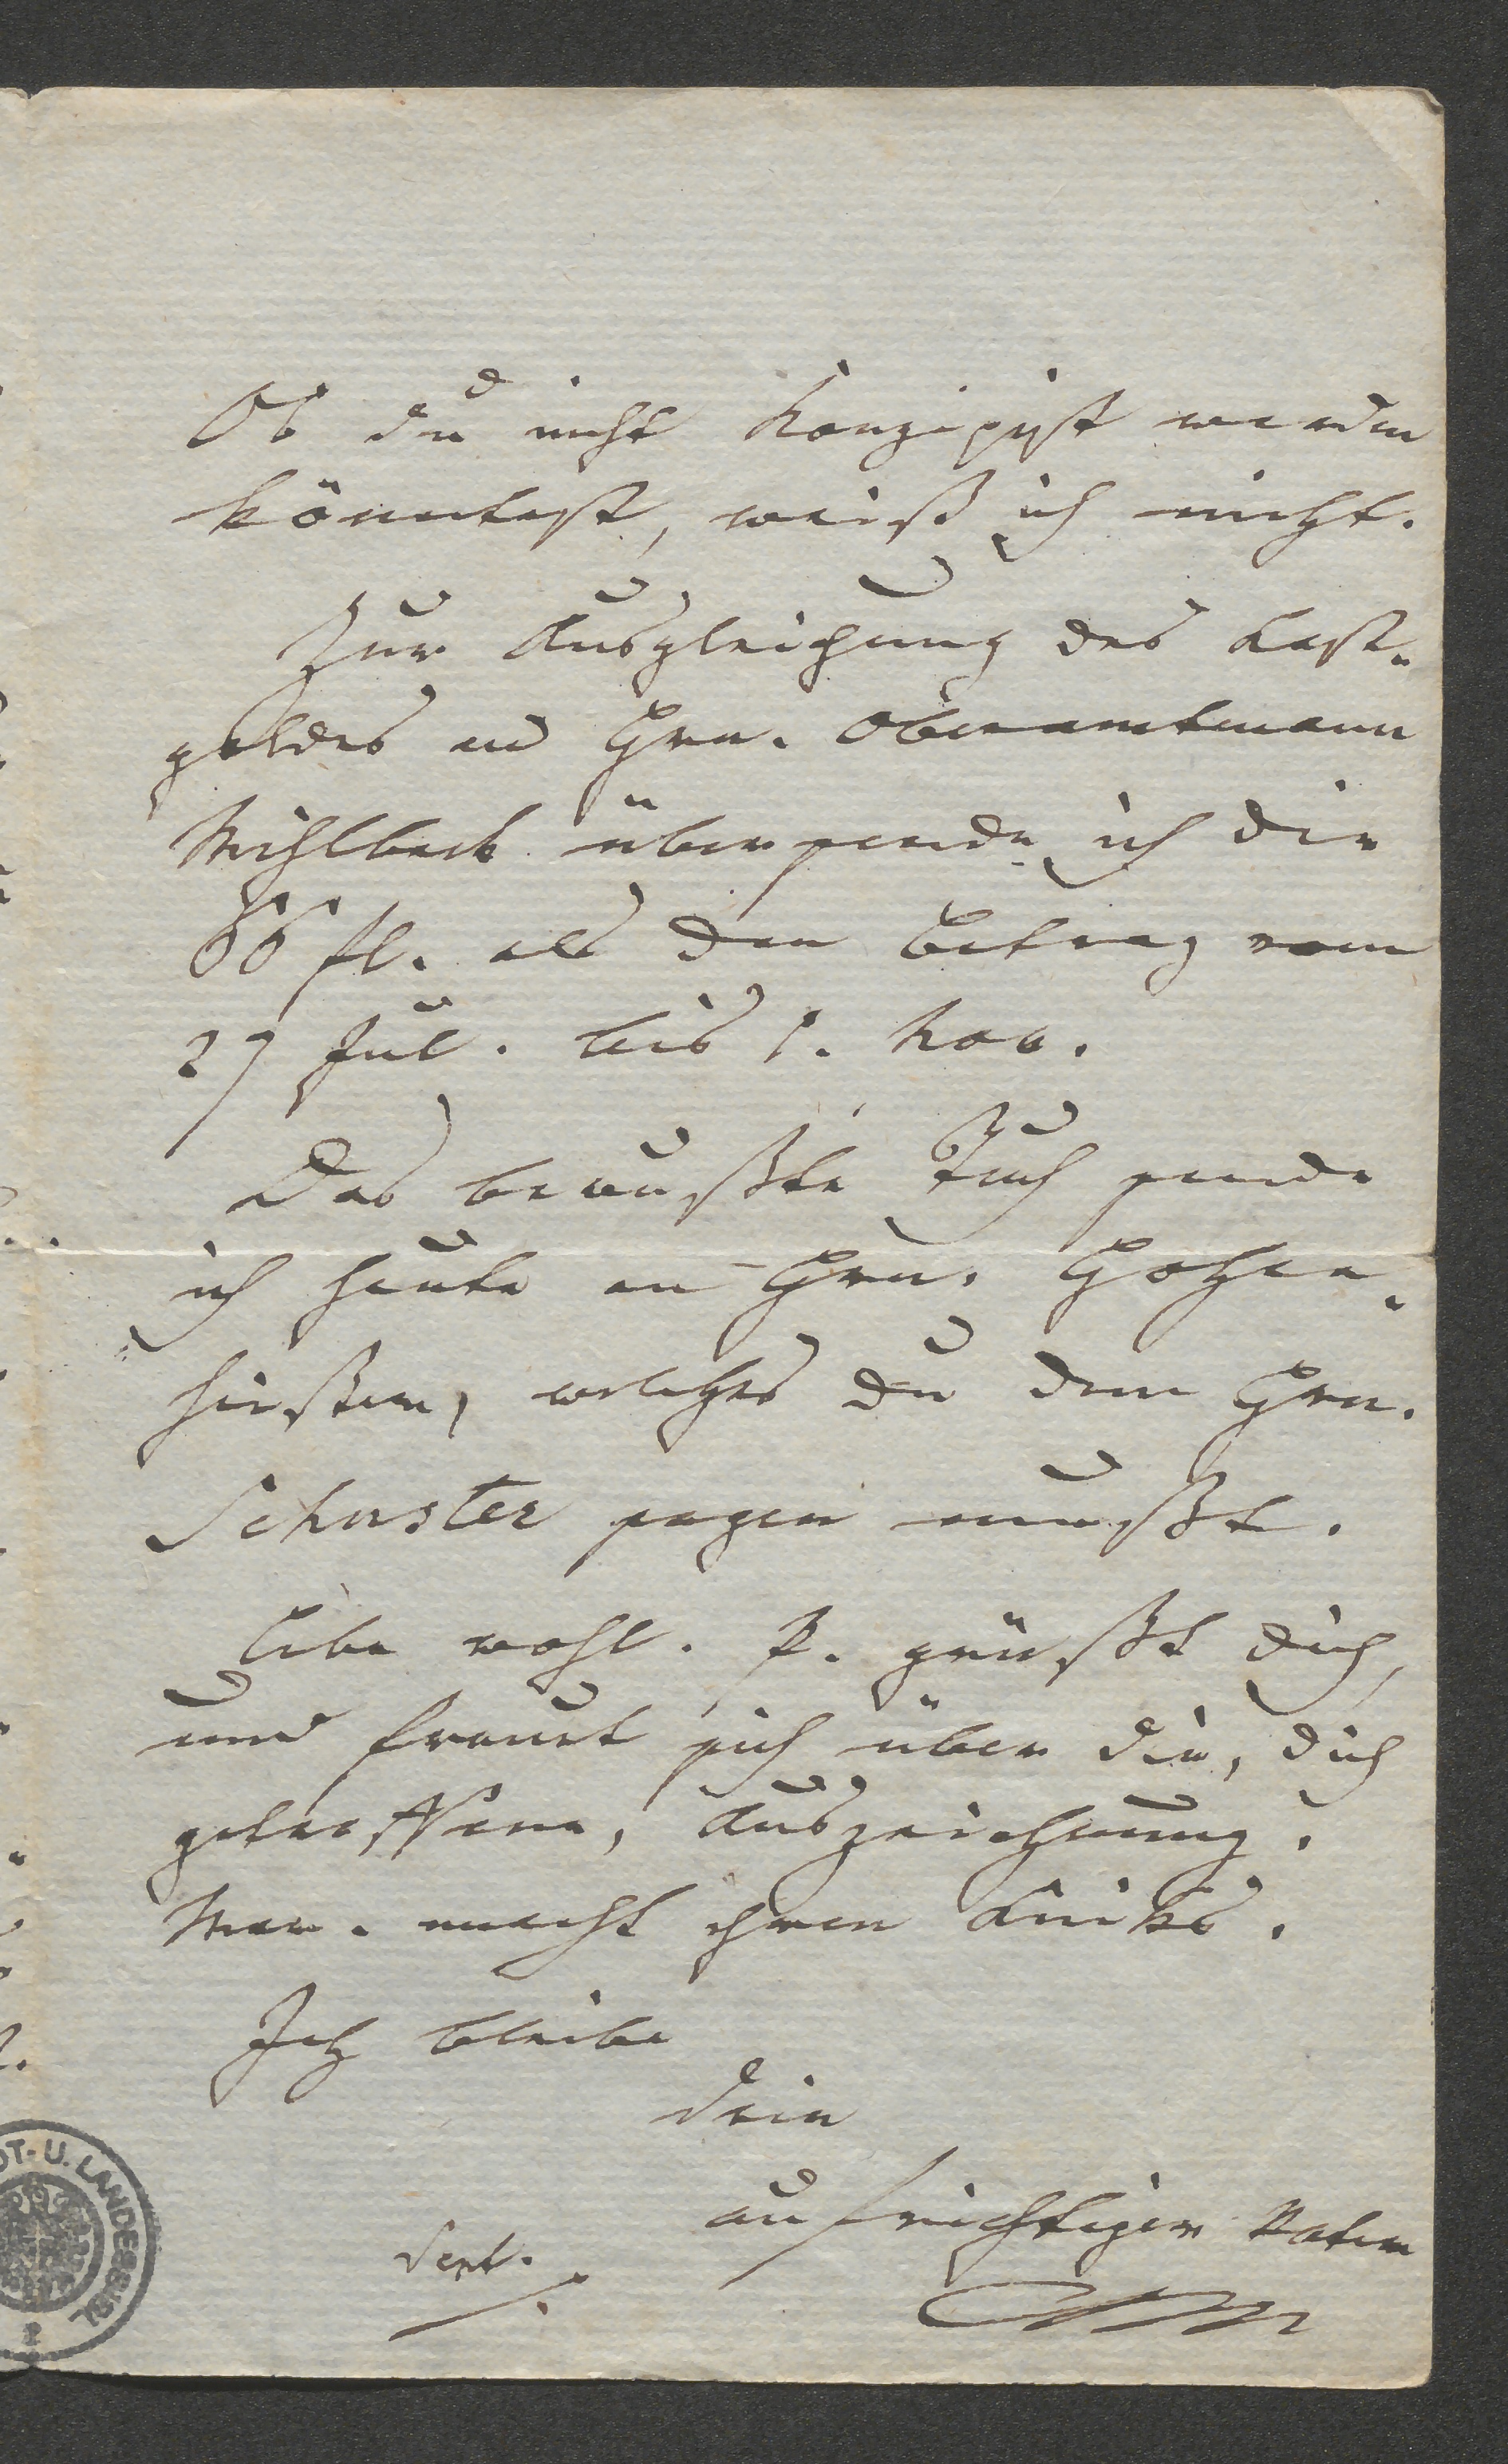 Ob du nicht Konzipist werden
könntest, weiß ich nicht.
Zur Ausgleichung des Kost-
geldes an Hrn. Oberamtmann
Mihlbeck übersende ich dir
66 fl. als den Betrag vom
27 Jul. bis 1. Nov.
Das bewußte Tuch sende
ich heute an Hrn. 
welches du dem Hrn.
Schuster sagen mußt.
Lebe wohl. P. grüßt dich,
und freut sich über die, dich
getroffene, Auszeichnung.
Mar. macht ihren Kniks.
Ich bleibe
dein
aufrichtiger Vater
T- U. LANDESBIBL